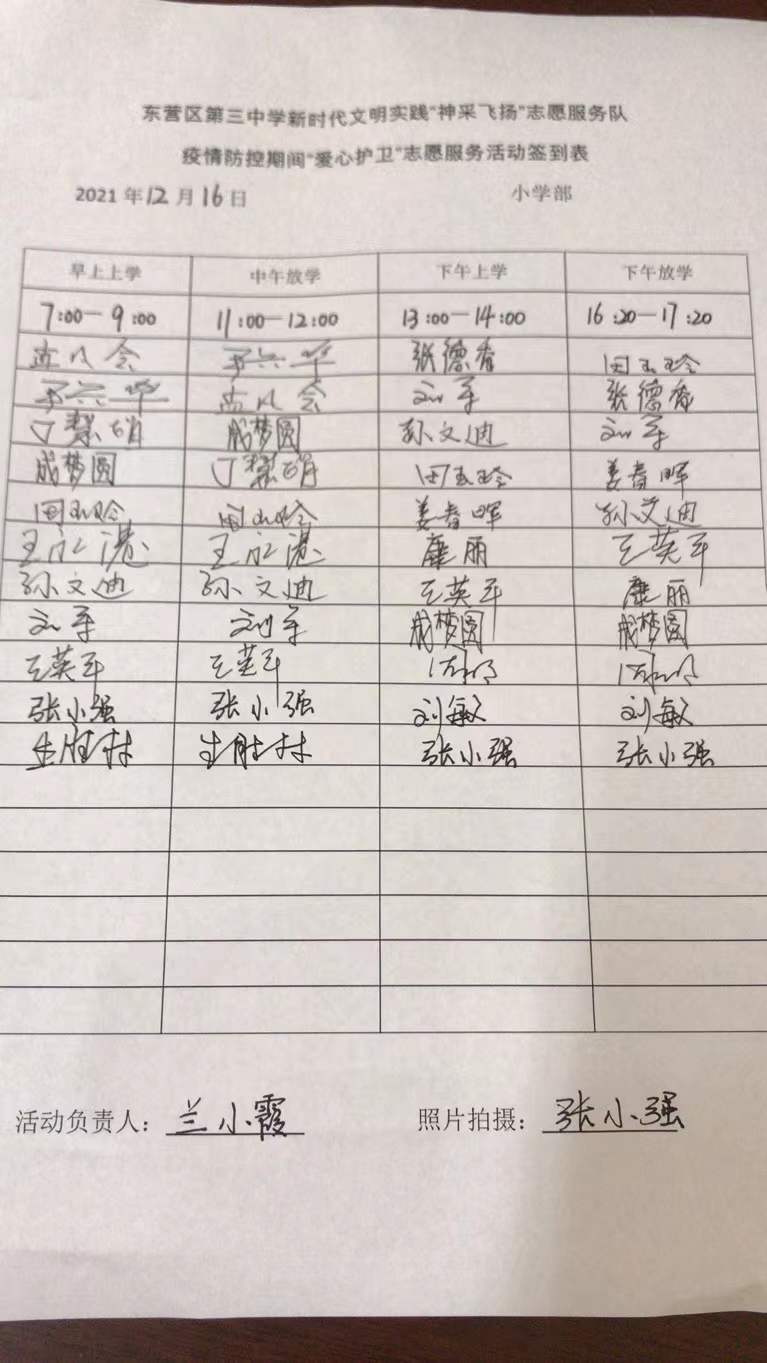 东营区第三中学新时代文明实践"神采飞扬"志愿服务队
疫情防控期间"爱心护卫"志愿服务活动签到表
2021年12月16日 小学部
早上上学 中午放学 下午上学 下午放学
7:00-9:00 11:00-12:00 13:00-14:00 16:20-17:20
张德香 田玉玲
刘军 张德香
成梦圆 孙文迪 刘军
成梦圆 田玉玲 姜春晖
田玉玲 田玉玲 姜春晖 孙文迪
王永湛 王永湛 廉丽 王英军
孙文迪 孙文迪 王英军 廉丽
刘军 刘军 成梦圆 成梦圆
王英军 王英军
张小强 张小强 刘敏 刘敏
生胜村 生胜村 张小强 张小强
活动负责人：兰小霞 照片拍摄：张小强